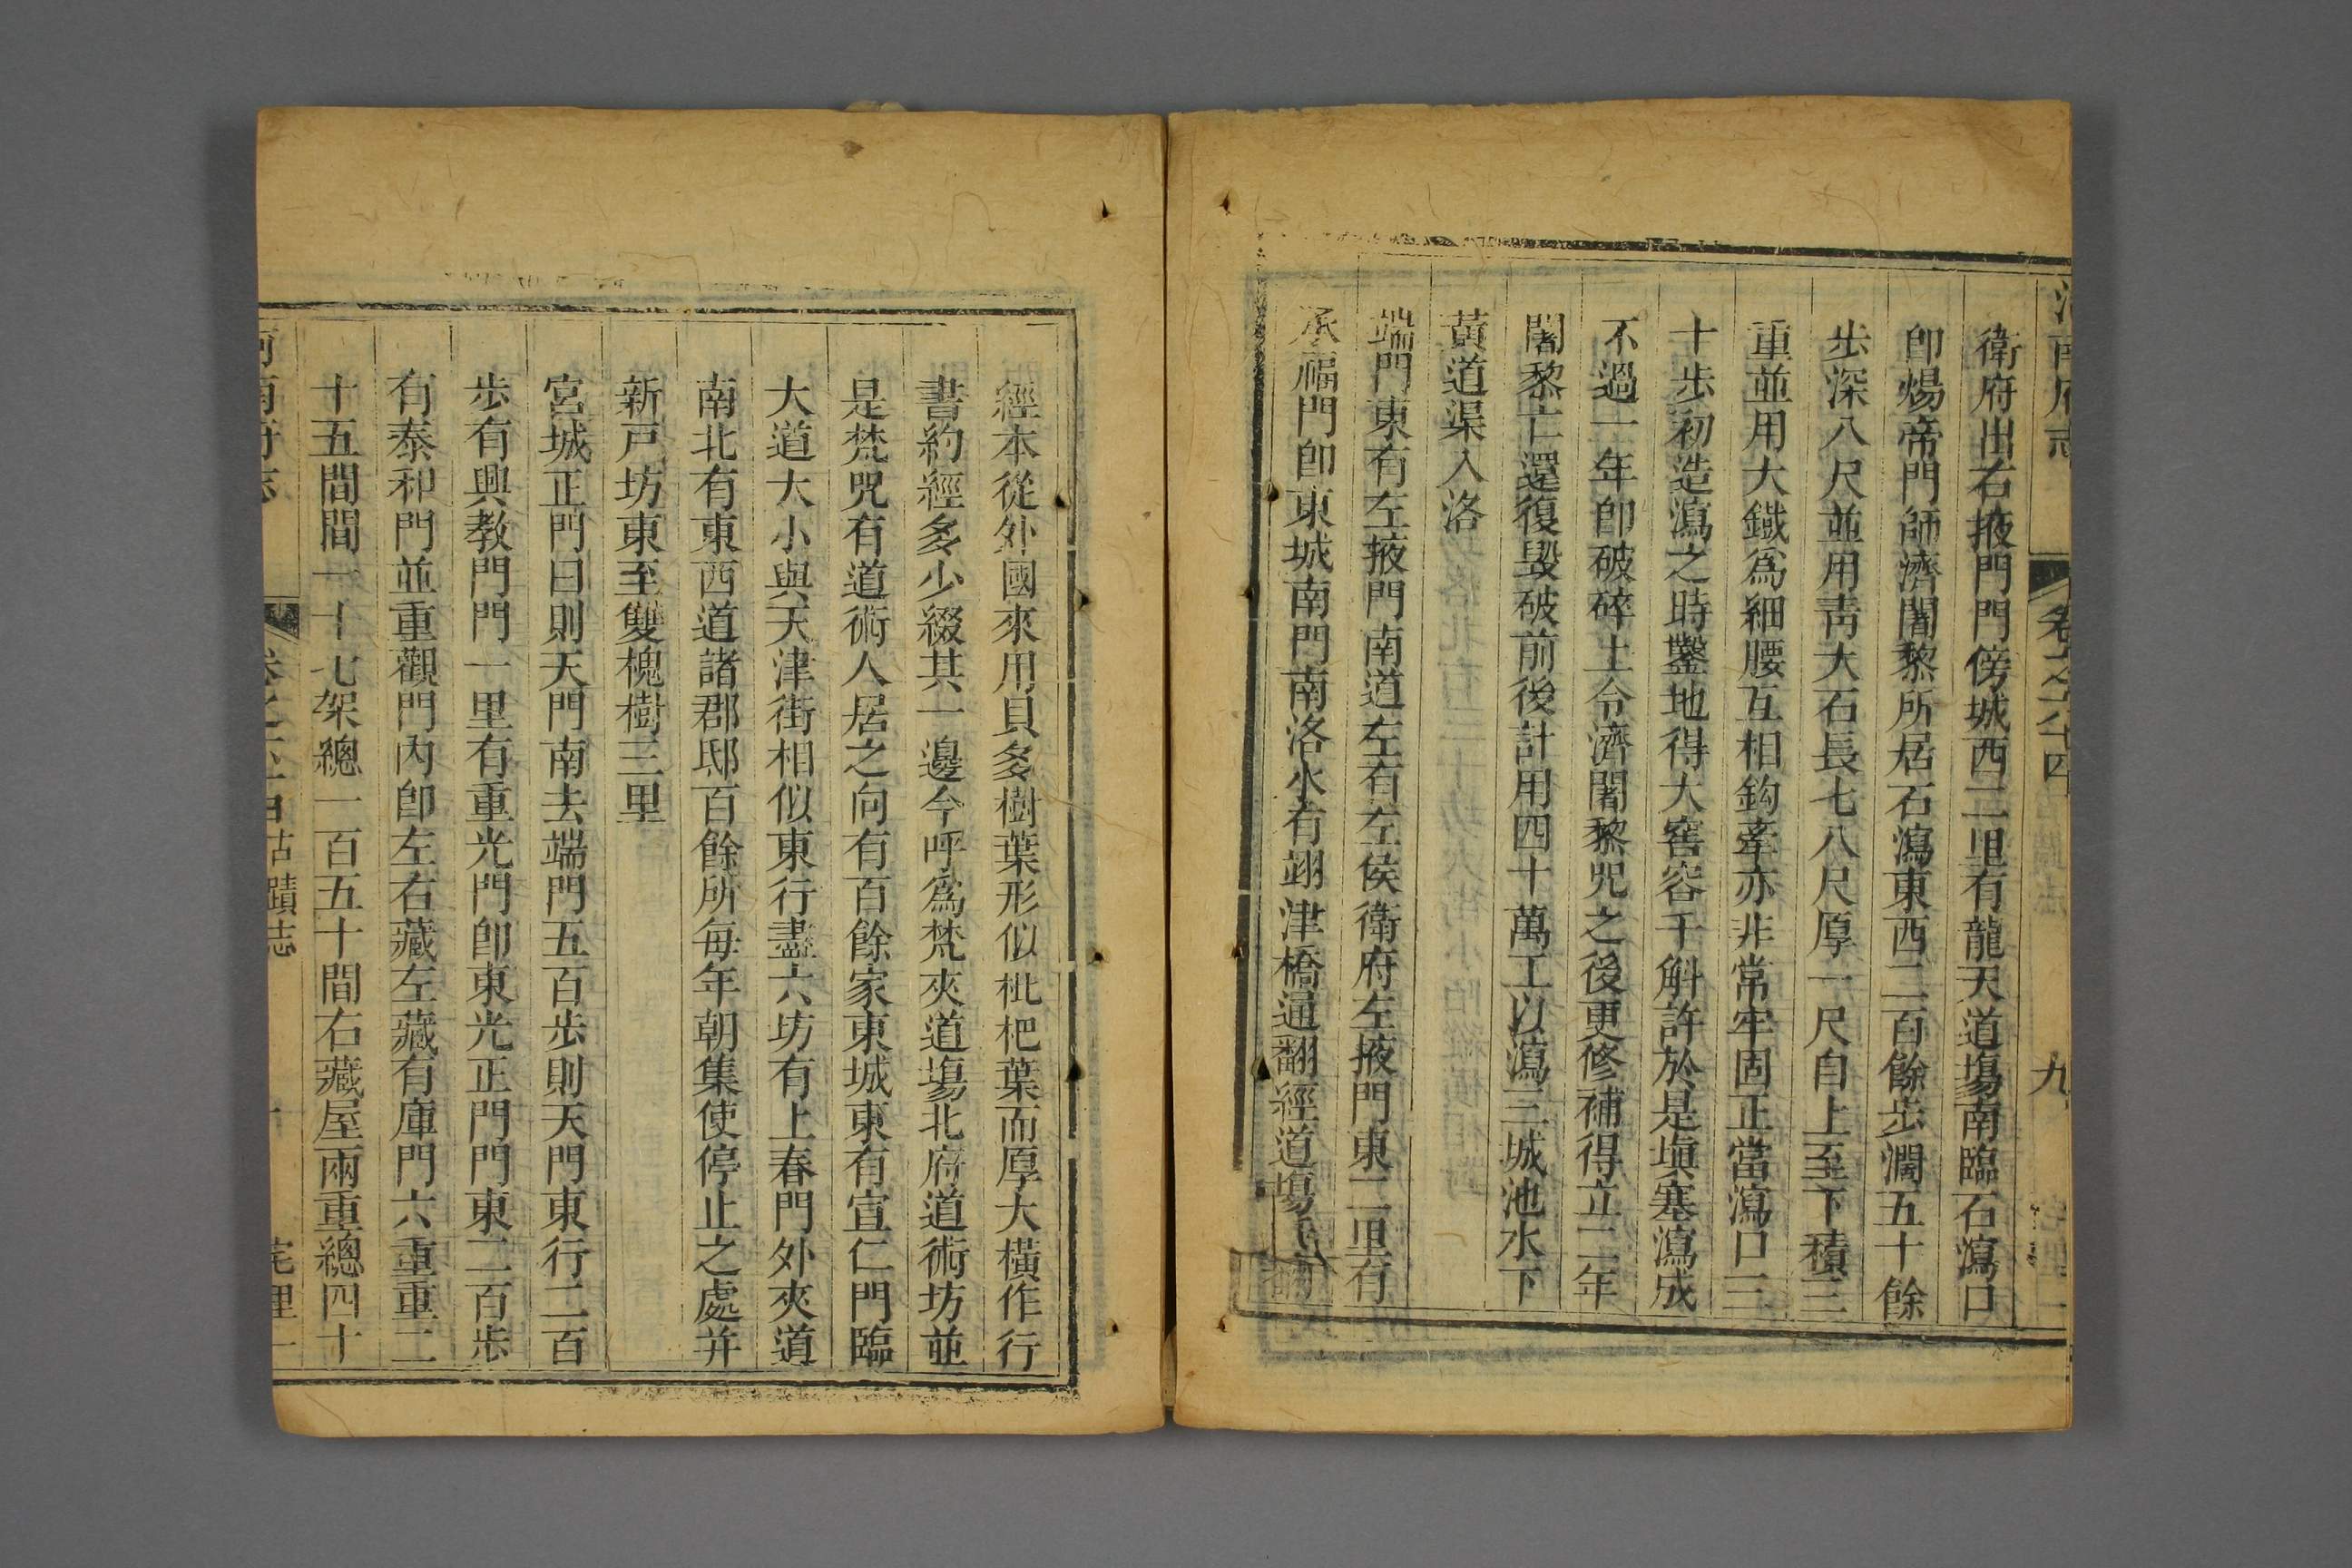 河南府志 卷之六十四 九
衛府出右掖門門傍城西二里有龍天道塲南臨石瀉口
卽煬帝門師濟闍黎所居石瀉東西二百餘步濶五十餘
步深八尺並用靑大石長七八尺厚一尺自上至下積三
重並用大鐵爲細腰互相鈎牽亦非常牢固正當瀉口三
十步初造瀉之時鑿地得大窖容千斛許於是塡塞瀉成
不過一年卽破碎上令濟闍黎咒之後更修補得立二年
闍黎亡還復毁破前後計用四十萬工以瀉三城池水下
黃道渠入洛
端門東有左掖門南道左有左侯衛府左掖門東二里有
承福門卽東城南門南洛水有翊津橋通翻經道塲
經本從外國來用貝多樹葉形似枇杷葉而厚大橫作行
書約經多少綴其一邊今呼爲梵夾道塲北府道術坊並
是梵咒有道術人居之向有百餘家東城東有宣仁門臨
大道大小與天津街相似東行盡六坊有上春門外夾道
南北有東西道諸郡邸百餘所每年朝集使停止之處并
新戸坊東至雙槐樹三里
宮城正門曰則天門南去端門五百步則天門東行二百
步有興教門門一里有重光門卽東光正門門東二百步
有泰和門並重觀門內卽左右藏左藏有庫門六重重二
十五間間一十七架總一百五十間右藏屋兩重總四十
河南府志 古蹟志